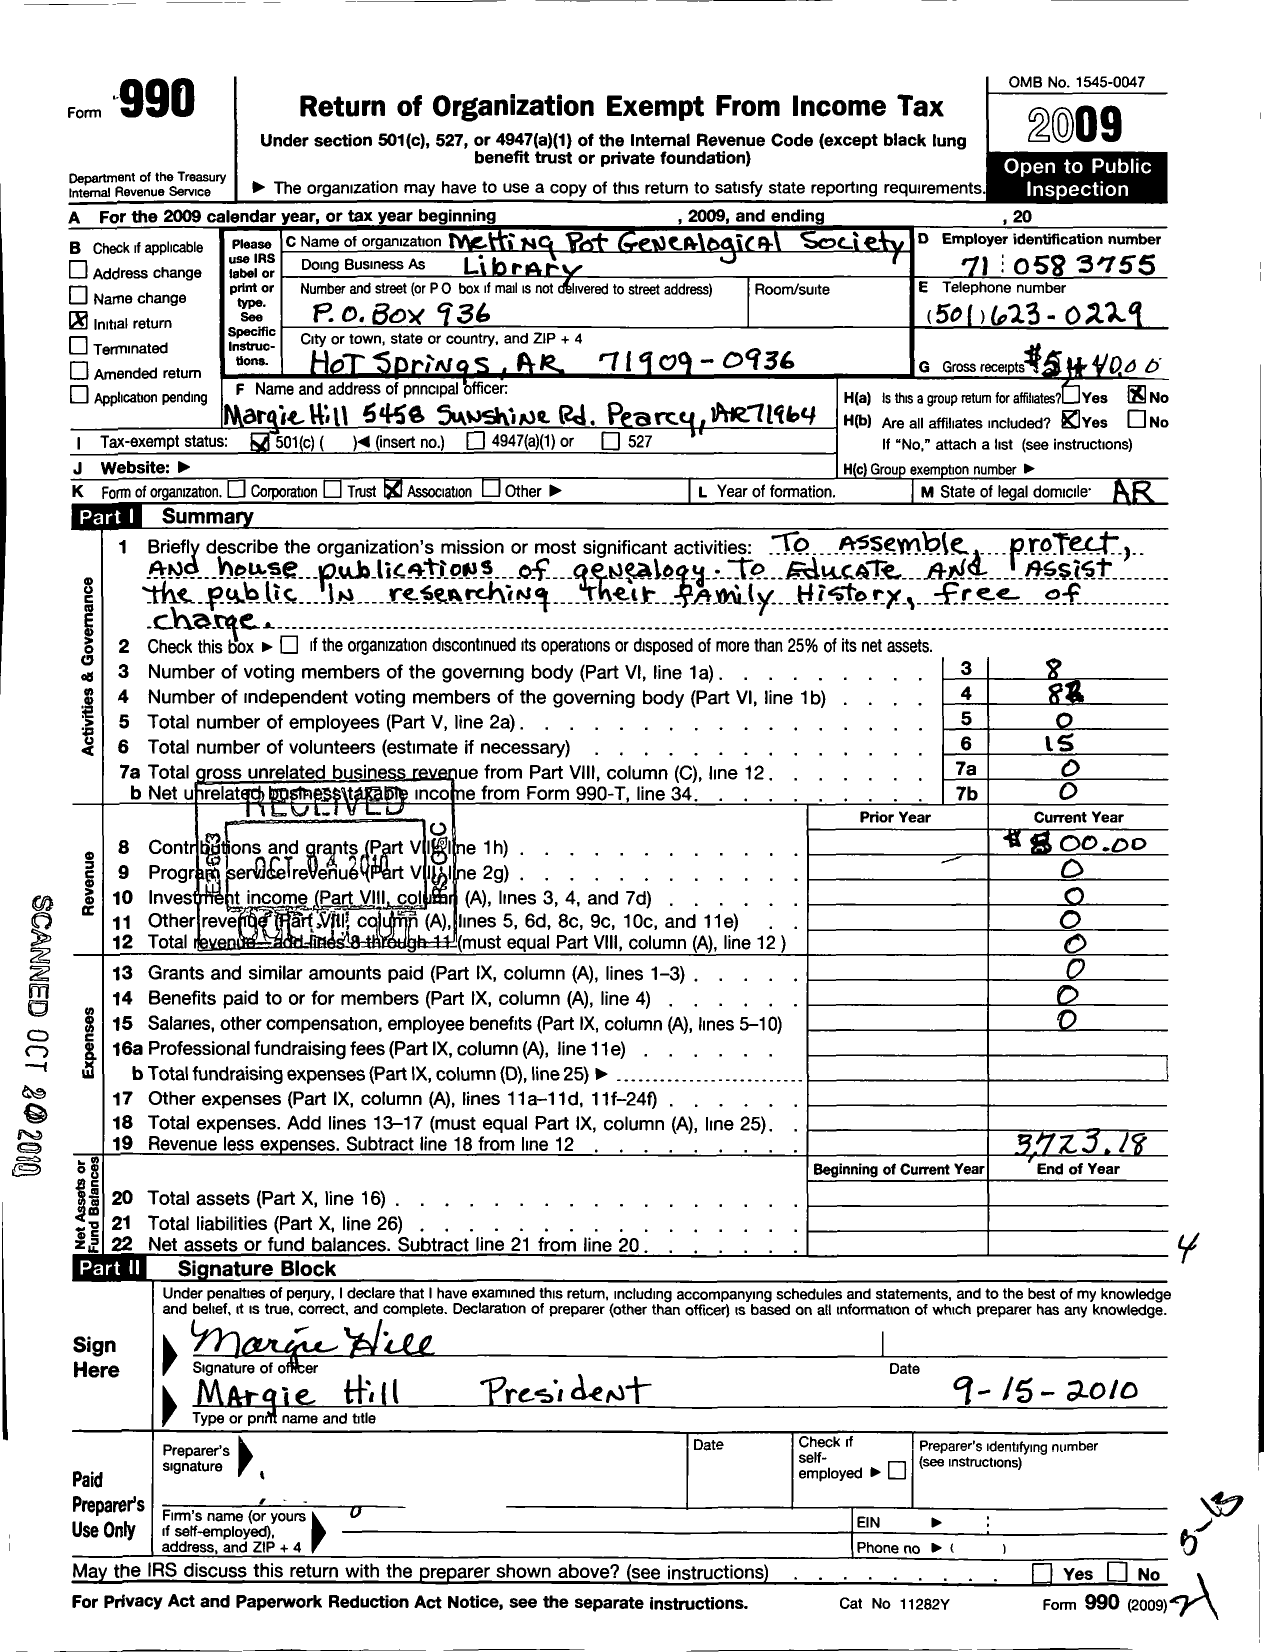 Form 990
Return of Organization Exempt From Income Tax
Under section 501(c), 527, or 4947(a)(1) of the Internal Revenue Code (except black lung
benefit trust or private foundation)
Department of the Treasury
Internal Revenue Service
▶ The organization may have to use a copy of this return to satisfy state reporting requirements.
OMB No. 1545-0047
2009
Open to Public
Inspection
A For the 2009 calendar year, or tax year beginning , 2009, and ending , 20
B Check if applicable
Address change
Name change
Initial return
Terminated
Amended return
Application pending
Please
use IRS
label or
print or
type.
See
Specific
Instruc-
tions.
C Name of organization Melting Pot Genealogical Society
Doing Business As Library
Number and street (or P O box if mail is not delivered to street address) Room/suite
P.O. Box 936
City or town, state or country, and ZIP + 4
Hot Springs, AR 71909-0936
D Employer identification number
71 0583755
E Telephone number
(501) 623-0229
G Gross receipts $
F Name and address of principal officer:
Margie Hill 5458 Sunshine Rd. Pearcy, AR 71964
H(a) Is this a group return for affiliates? Yes No
H(b) Are all affiliates included? Yes No
If "No," attach a list (see instructions)
H(c) Group exemption number ▶
I Tax-exempt status: 501(c) ( )◀ (insert no.) 4947(a)(1) or 527
J Website: ▶
K Form of organization. Corporation Trust Association Other ▶
L Year of formation.
M State of legal domicile AR
Part I Summary
Activities & Governance
1 Briefly describe the organization's mission or most significant activities: To Assemble, protect,
And house publications of genealogy. To Educate And Assist
the public in researching their family History, free of
charge.
2 Check this box ▶ if the organization discontinued its operations or disposed of more than 25% of its net assets.
3 Number of voting members of the governing body (Part VI, line 1a) 3 8
4 Number of independent voting members of the governing body (Part VI, line 1b) 4 8
5 Total number of employees (Part V, line 2a) 5 0
6 Total number of volunteers (estimate if necessary) 6 15
7a Total gross unrelated business revenue from Part VIII, column (C), line 12 7a 0
b Net unrelated business taxable income from Form 990-T, line 34 7b 0
RECEIVED
OCT 04 2010
IRS-OSC
Revenue
Prior Year Current Year
8 Contributions and grants (Part VIII, line 1h) 00.00
9 Program service revenue (Part VIII, line 2g) 0
10 Investment income (Part VIII, column (A), lines 3, 4, and 7d) 0
11 Other revenue (Part VIII, column (A), lines 5, 6d, 8c, 9c, 10c, and 11e) 0
12 Total revenue—add lines 8 through 11 (must equal Part VIII, column (A), line 12 ) 0
Expenses
13 Grants and similar amounts paid (Part IX, column (A), lines 1–3) 0
14 Benefits paid to or for members (Part IX, column (A), line 4) 0
15 Salaries, other compensation, employee benefits (Part IX, column (A), lines 5–10) 0
16a Professional fundraising fees (Part IX, column (A), line 11e)
b Total fundraising expenses (Part IX, column (D), line 25) ▶
17 Other expenses (Part IX, column (A), lines 11a–11d, 11f–24f)
18 Total expenses. Add lines 13–17 (must equal Part IX, column (A), line 25)
19 Revenue less expenses. Subtract line 18 from line 12 3,723.18
Net Assets or
Fund Balances
Beginning of Current Year End of Year
20 Total assets (Part X, line 16)
21 Total liabilities (Part X, line 26)
22 Net assets or fund balances. Subtract line 21 from line 20
SCANNED OCT 20 2010
4
Part II Signature Block
Under penalties of perjury, I declare that I have examined this return, including accompanying schedules and statements, and to the best of my knowledge
and belief, it is true, correct, and complete. Declaration of preparer (other than officer) is based on all information of which preparer has any knowledge.
Sign
Here
Margie Hill
Signature of officer Date
Margie Hill President 9-15-2010
Type or print name and title
Paid
Preparer's
Use Only
Preparer's
signature
Date
Check if
self-
employed ▶
Preparer's identifying number
(see instructions)
Firm's name (or yours
if self-employed),
address, and ZIP + 4
EIN ▶
Phone no ▶ ( )
May the IRS discuss this return with the preparer shown above? (see instructions) Yes No
For Privacy Act and Paperwork Reduction Act Notice, see the separate instructions.
Cat No 11282Y
Form 990 (2009)